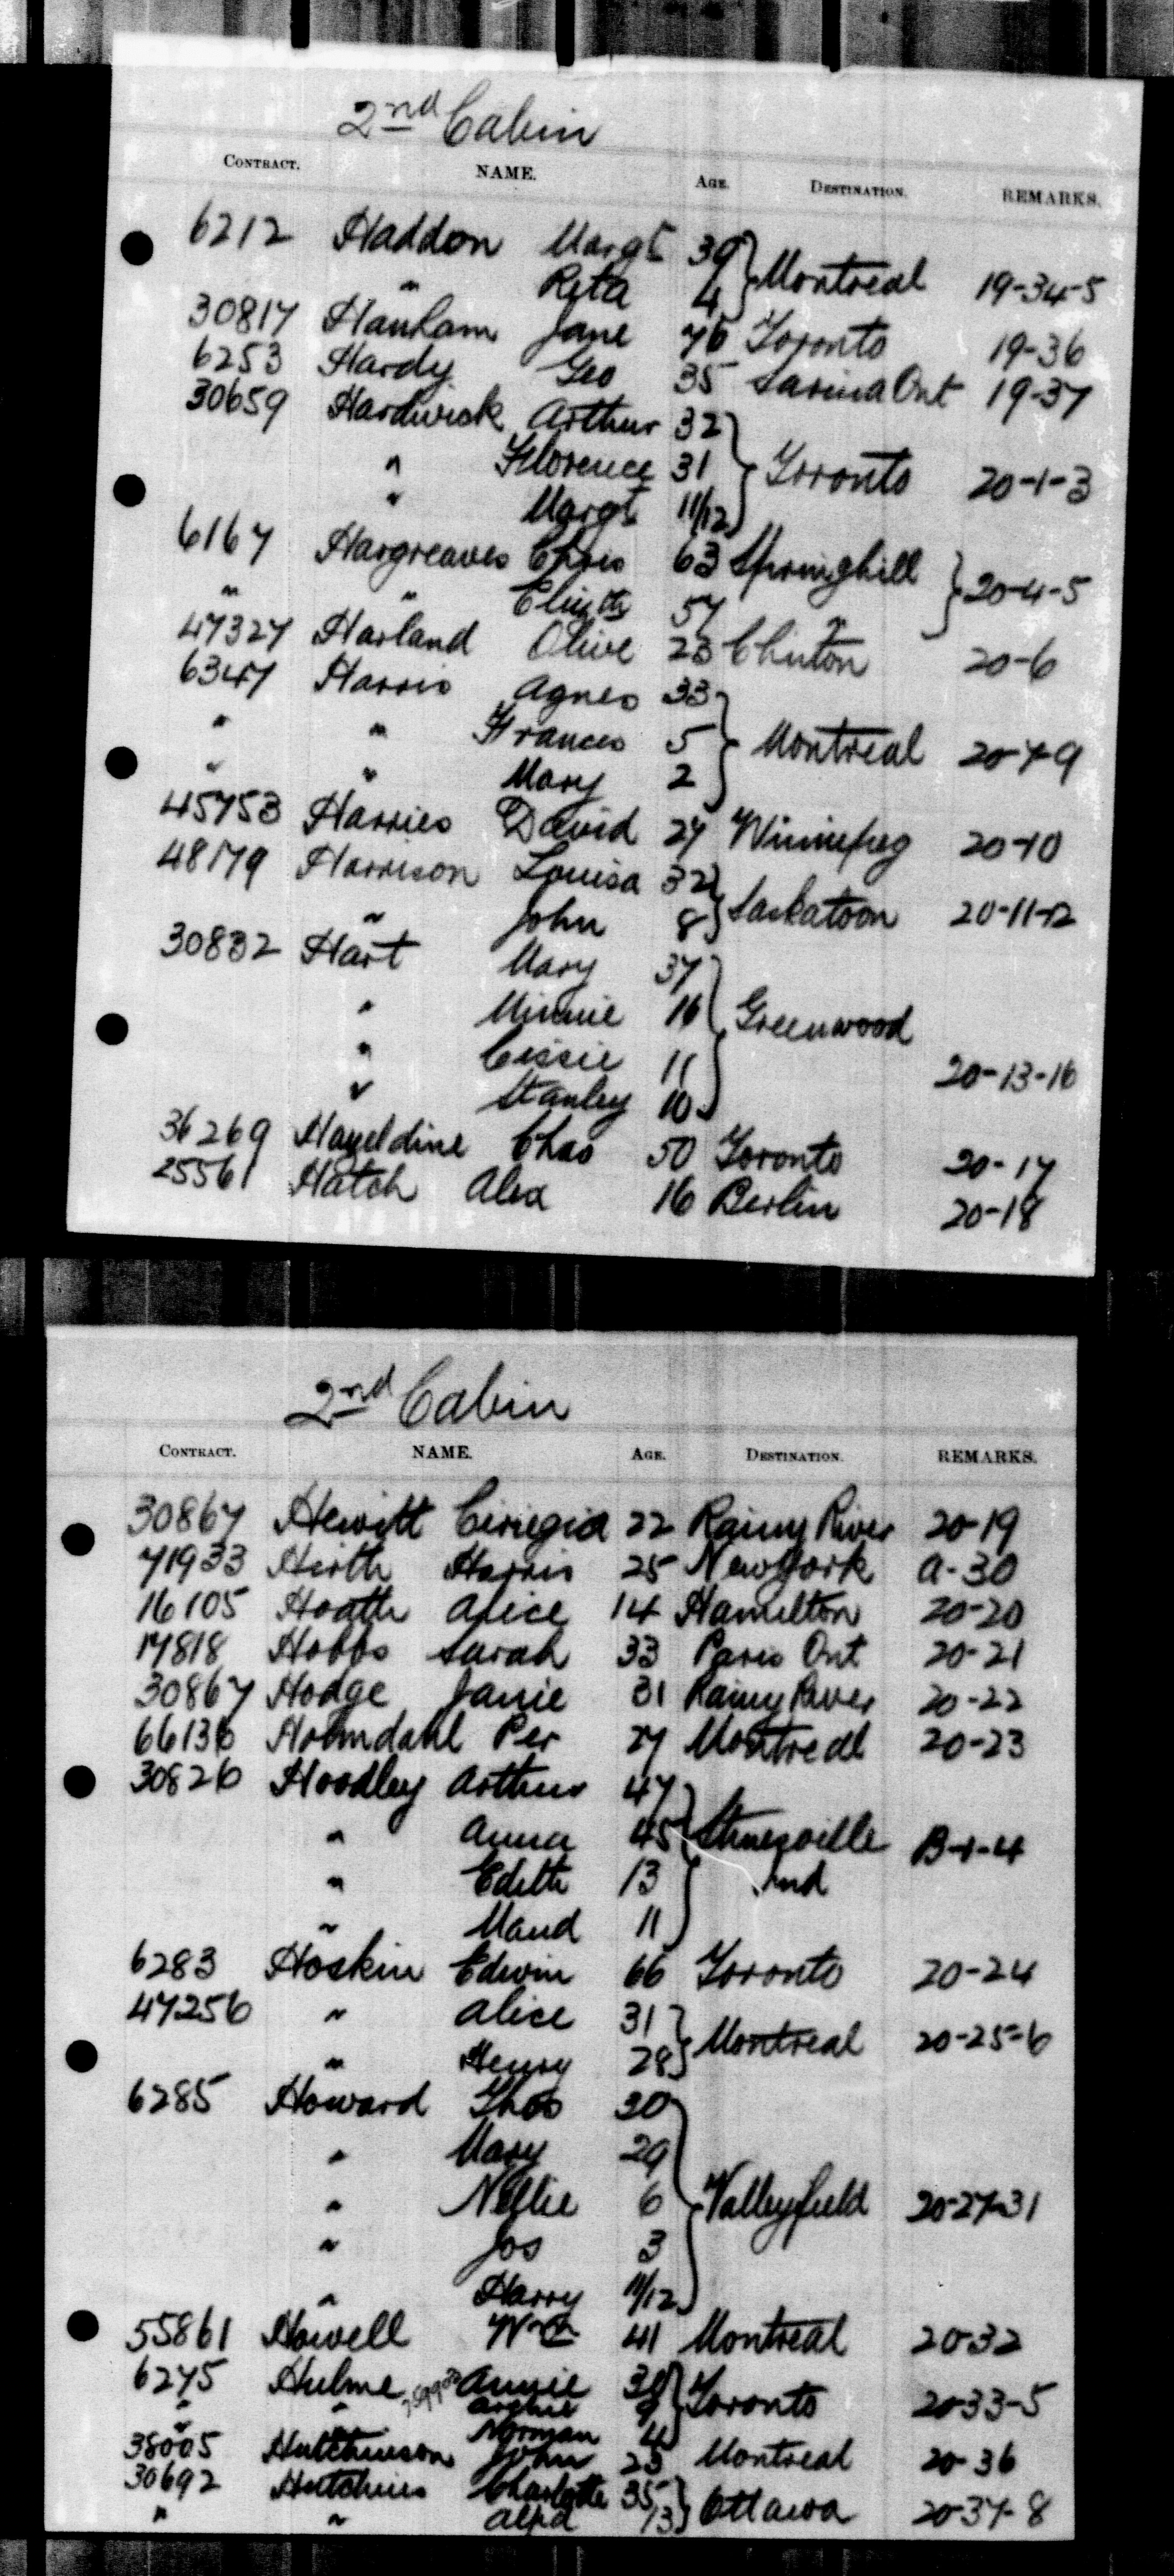 2nd Cabin
CONTRACT. NAME. AGE. DESTINATION. REMARKS.
6212 Haddon Margt 39 } Montreal 19-34-5
" Rita 4
30817 Hanham Jane 76 Toronto 19-36
6253 Hardy Geo 35 Sarnia Ont 19-37
30659 Hardwick Arthur 32 } Toronto 20-1-3
" Florence 31
" Margt 11/12
6167 Hargreaves Chris 63 Springhill } 20-4-5
" " Elizth 57 "
47327 Harland Olive 23 Clinton 20-6
6347 Harris Agnes 33 } Montreal 20-7-9
" " Frances 5
" " Mary 2
45753 Harries David 27 Winnipeg 20-10
48179 Harrison Louisa 32 } Saskatoon 20-11-12
" John 8
30832 Hart Mary 37 } Greenwood 20-13-16
" Minnie 16
" Cissie 11
" Stanley 10
36269 Hazeldine Chas 50 Toronto 20-17
25561 Hatch Alex 16 Berlin 20-18
2nd Cabin
CONTRACT. NAME. AGE. DESTINATION. REMARKS.
30867 Hewitt 22 Rainy River 20-19
71933 Hirth Harris 25 New York A-30
16105 Hoath Alice 14 Hamilton 20-20
17818 Hobbs Sarah 33 Paris Ont 20-21
30867 Hodge Janie 31 Rainy River 20-22
66136 Holmdahl Per 27 Montreal 20-23
30826 Hoodley Arthur 47 } Stinesville Ind B-1-4
" Anna 45
" Edith 13
" Maud 11
6283 Hoskin Edwin 66 Toronto 20-24
47256 " Alice 31 } Montreal 20-25-6
" Henry 28
6285 Howard Thos 30 } Valleyfield 20-27-31
" Mary 29
" Nellie 6
" Jos 3
" Harry 11/12
55861 Howell Wm 41 Montreal 20-32
6275 Hulme Annie 30 } Toronto 20-33-5
" " Archie 9
" Norman 4
38005 Hutchinson John 25 Montreal 20-36
30692 Hutchins Charlotte 35 } Ottawa 20-37-8
" " Alfd 13